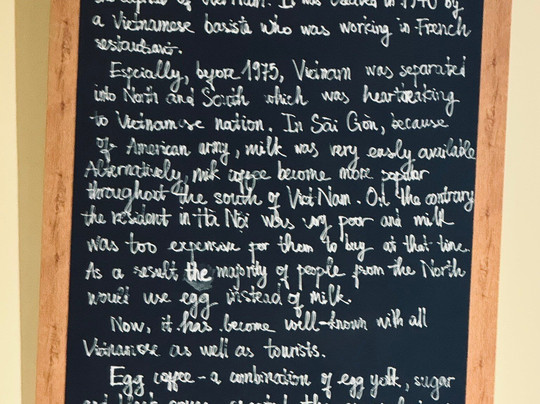 the capital of Viet Nam. It was created in 1940 by
a Vietnamese barista who was working in French
restaurant.
Especially, before 1975, Vietnam was separated
into North and South which was heartbreaking
to Vietnamese nation. In Sài Gòn, because
of American army, milk was very easly available
Alternatively, milk coffee become more popular
throughout the south of Viet Nam. On the contrary
the resident in Hà Nội was very poor and milk
was too expensive for them to buy at that time.
As a result the majority of people from the North
would use egg instead of milk.
Now, it has become well-known with all
Vietnamese as well as tourists.
Egg coffee - a combination of egg yolk, sugar
and